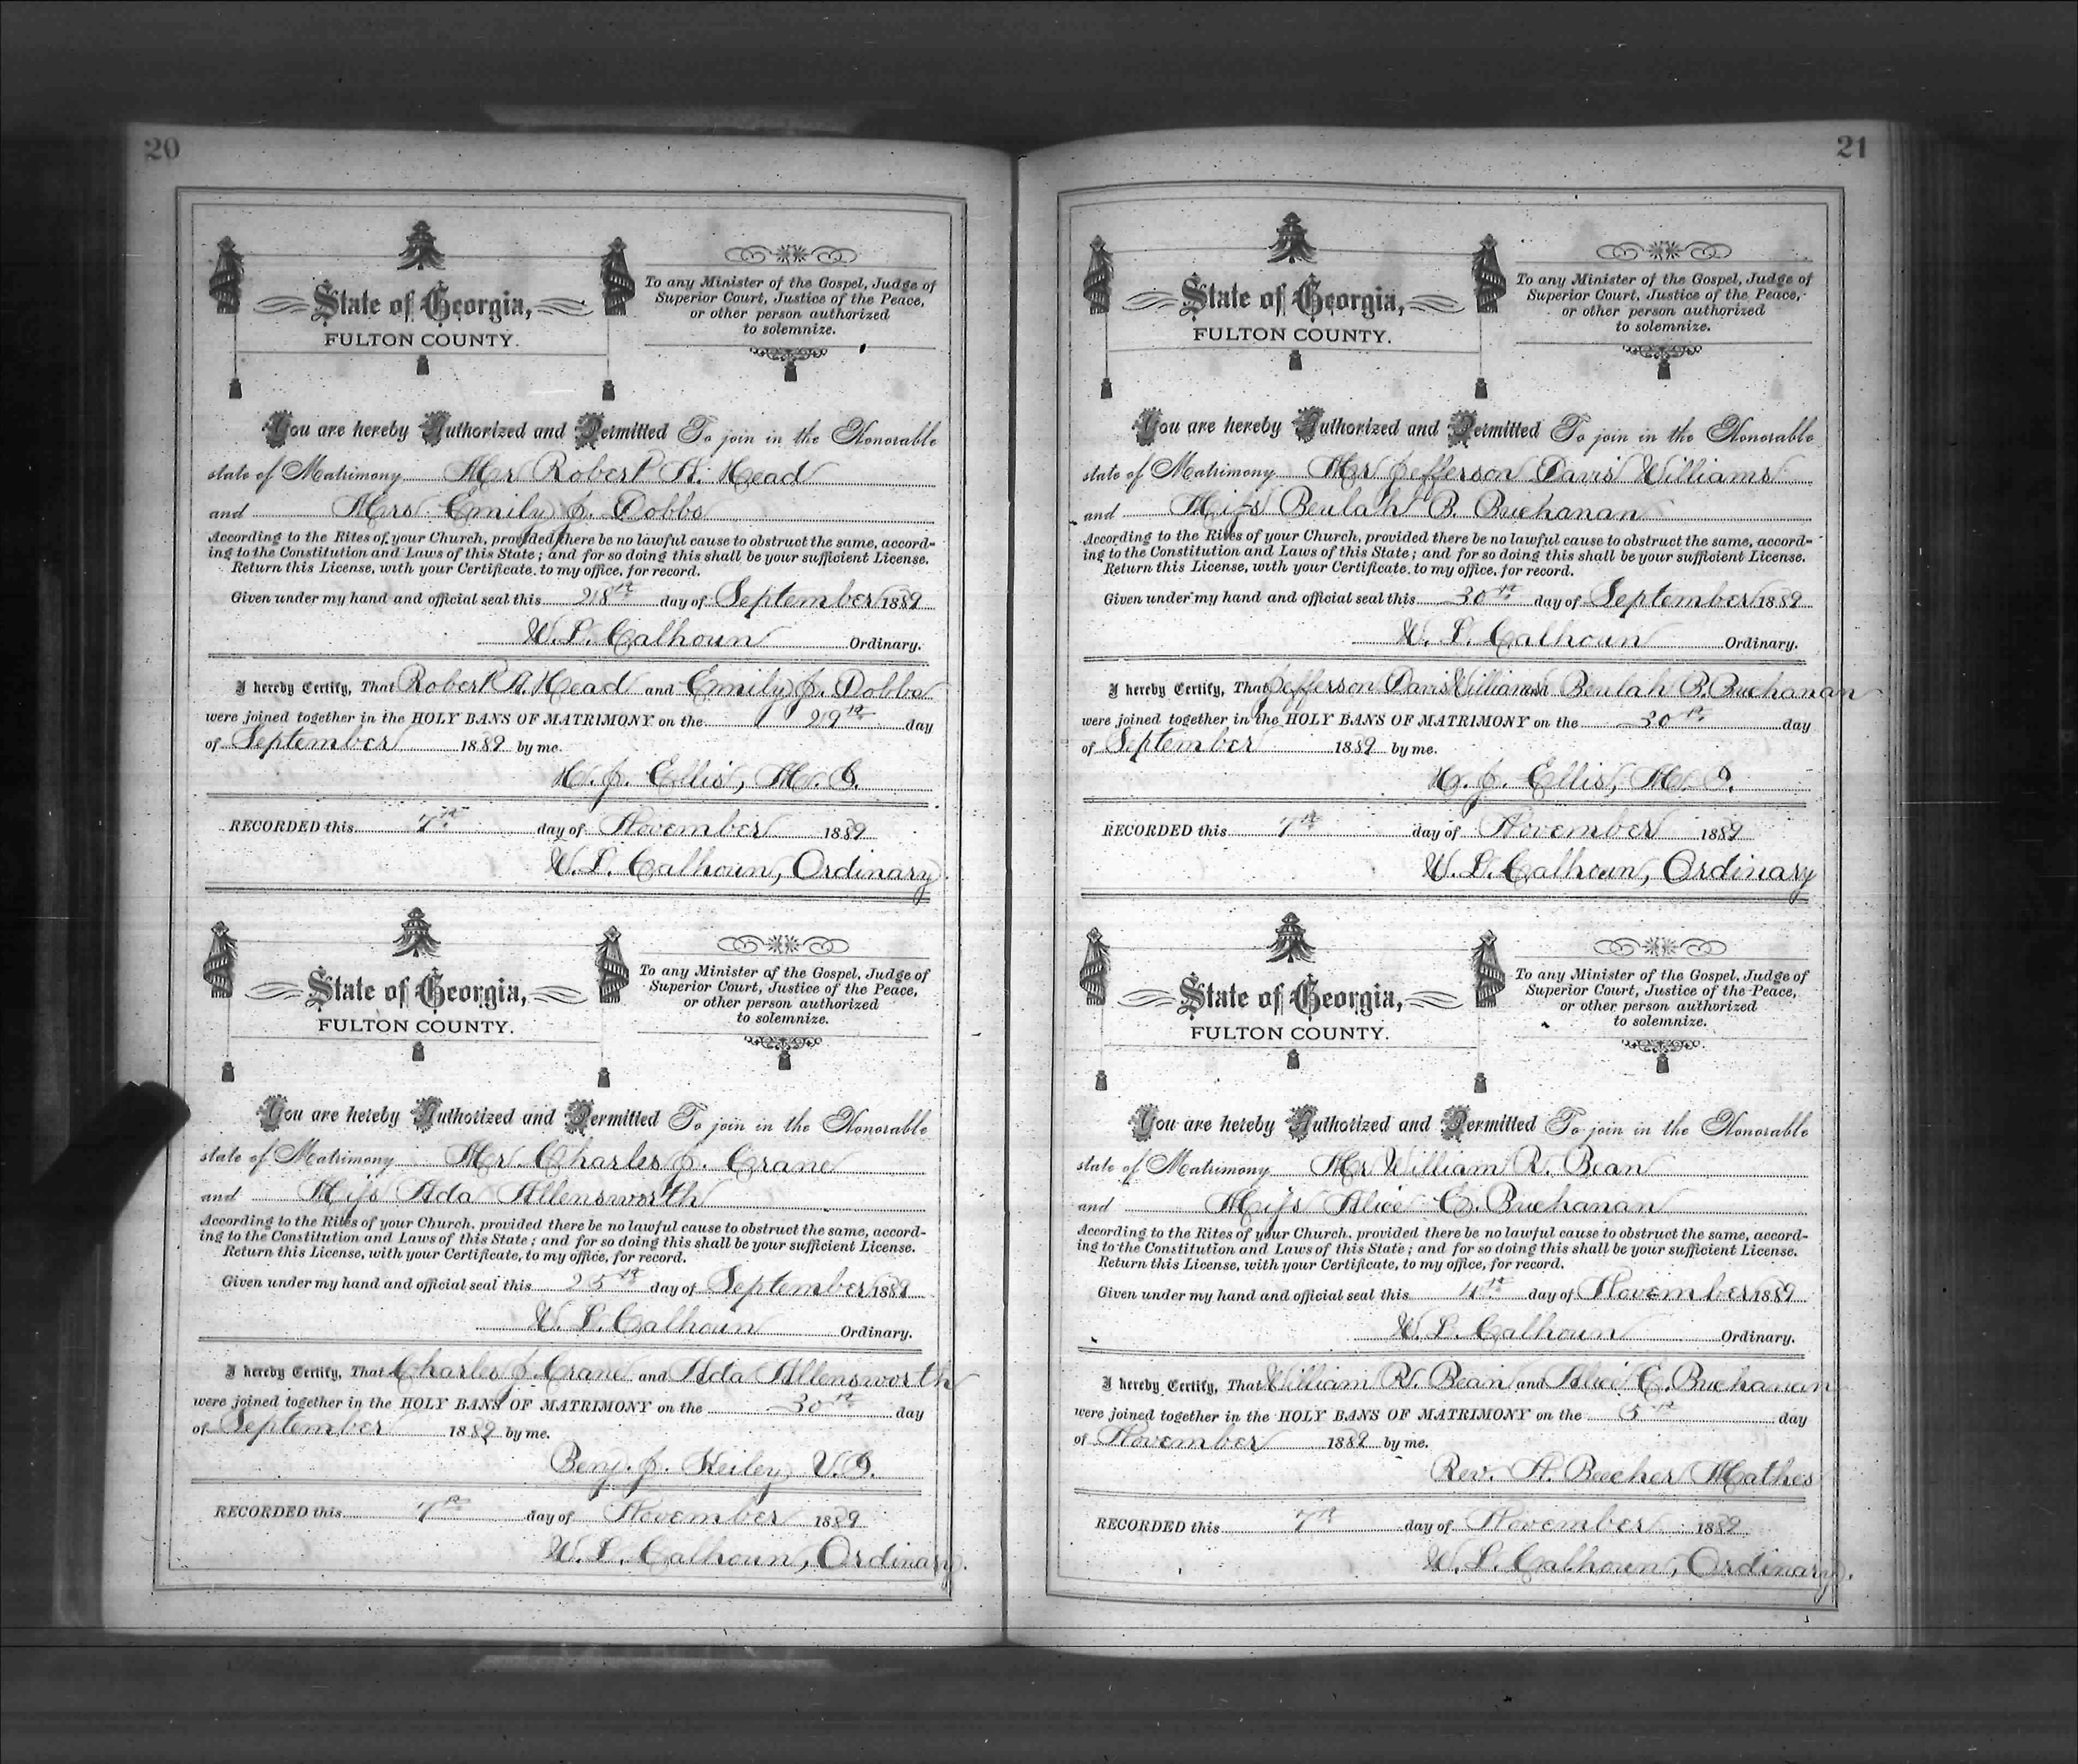 20
State of Georgia,
FULTON COUNTY.
To any Minister of the Gospel, Judge of
Superior Court, Justice of the Peace,
or other person authorized
to solemnize.
You are hereby Authorized and Permitted To join in the Honorable
state of Matrimony Mr Robert A. Head
and Mrs Emily J. Dobbs
According to the Rites of your Church, provided there be no lawful cause to obstruct the same, accord-
ing to the Constitution and Laws of this State; and for so doing this shall be your sufficient License.
Return this License, with your Certificate, to my office, for record.
Given under my hand and official seal this 28th day of September 1889
W. L. Calhoun Ordinary.
I hereby Certify, That Robert A. Head and Emily J. Dobbs
were joined together in the HOLY BANS OF MATRIMONY on the 29th day
of September 1889 by me.
H. J. Ellis, M. G.
RECORDED this 7th day of November 1889
W. L. Calhoun, Ordinary
State of Georgia,
FULTON COUNTY.
To any Minister of the Gospel, Judge of
Superior Court, Justice of the Peace,
or other person authorized
to solemnize.
You are hereby Authorized and Permitted To join in the Honorable
state of Matrimony Mr. Charles J. Crane
and Miss Ada Allensworth
According to the Rites of your Church, provided there be no lawful cause to obstruct the same, accord-
ing to the Constitution and Laws of this State; and for so doing this shall be your sufficient License.
Return this License, with your Certificate, to my office, for record.
Given under my hand and official seal this 25th day of September 1889
W. L. Calhoun Ordinary.
I hereby Certify, That Charles J. Crane and Ada Allensworth
were joined together in the HOLY BANS OF MATRIMONY on the 30th day
of September 1889 by me.
Benj. J. Keiley, V. G.
RECORDED this 7th day of November 1889
W. L. Calhoun, Ordinary.
21
State of Georgia,
FULTON COUNTY.
To any Minister of the Gospel, Judge of
Superior Court, Justice of the Peace,
or other person authorized
to solemnize.
You are hereby Authorized and Permitted To join in the Honorable
state of Matrimony Mr Jefferson Davis Williams
and Miss Beulah B. Buchanan
According to the Rites of your Church, provided there be no lawful cause to obstruct the same, accord-
ing to the Constitution and Laws of this State; and for so doing this shall be your sufficient License.
Return this License, with your Certificate, to my office, for record.
Given under my hand and official seal this 30th day of September 1889
W. L. Calhoun Ordinary.
I hereby Certify, That Jefferson Davis Williams and Beulah B. Buchanan
were joined together in the HOLY BANS OF MATRIMONY on the 30th day
of September 1889 by me.
H. J. Ellis, M. G.
RECORDED this 7th day of November 1889
W. L. Calhoun, Ordinary
State of Georgia,
FULTON COUNTY.
To any Minister of the Gospel, Judge of
Superior Court, Justice of the Peace,
or other person authorized
to solemnize.
You are hereby Authorized and Permitted To join in the Honorable
state of Matrimony Mr William R. Bean
and Miss Alice E. Buchanan
According to the Rites of your Church, provided there be no lawful cause to obstruct the same, accord-
ing to the Constitution and Laws of this State; and for so doing this shall be your sufficient License.
Return this License, with your Certificate, to my office, for record.
Given under my hand and official seal this 4th day of November 1889
W. L. Calhoun Ordinary.
I hereby Certify, That William R. Bean and Alice E. Buchanan
were joined together in the HOLY BANS OF MATRIMONY on the 5th day
of November 1889 by me.
Rev. A. Beecher Mathes
RECORDED this 7th day of November 1889
W. L. Calhoun, Ordinary.